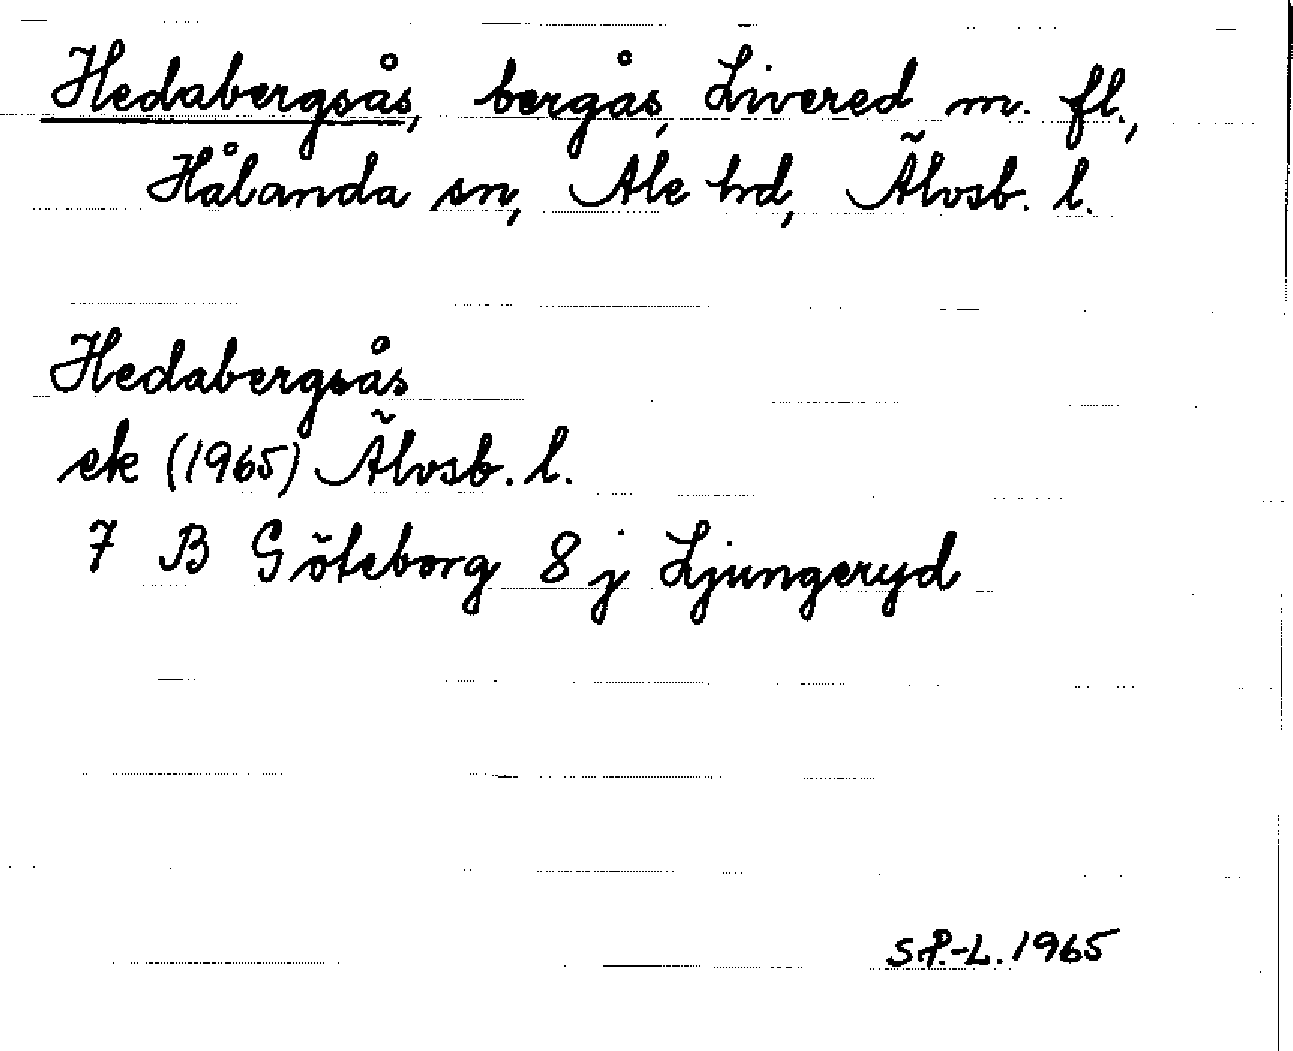 Hedabergsås, bergås, Livered m. fl.,
Hålanda sn, Ale hd, Älvsb. l.
Hedabergsås
ek (1965) Älvsb. l.
7 B Göteborg 8 j Ljungeryd
S.P.-L. 1965